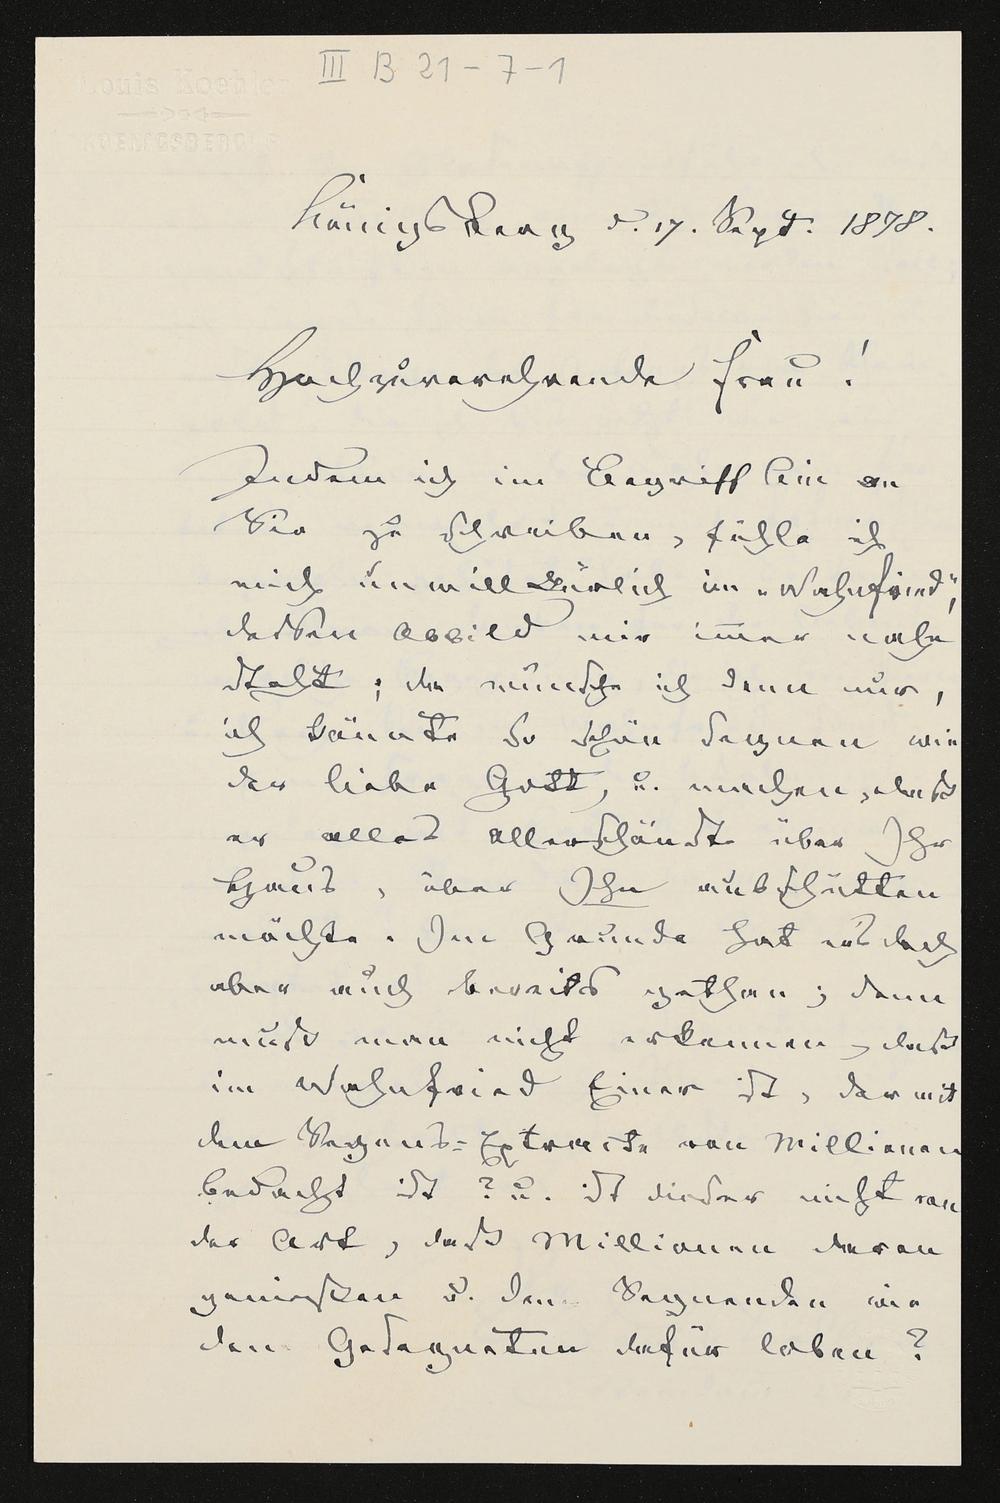 III B 21-7-1
Louis Koehler
KOENIGSBERG i/P
Königsberg d. 17. Sept. 1878.
Hochzuverehrende Frau!
Indem ich im Begriff bin an
Sie zu schreiben, fühle ich
mich unwillkürlich im „Wahnfried“,
dessen Abbild mir im̅er nahe
steht; da wünsche ich denn nur,
ich könnte so schön segnen wie
der liebe Gott, u. machen, daß
er alles Allerschönste über Ihr
Haus, über Ihn ausschütten
möchte. Im Grunde hat er's doch
aber auch bereits gethan; denn
muß man nicht erkennen, daß
im Wahnfried Einer ist, der mit
dem Segens-Extracte von Millionen
bedacht ist? u. ist dieser nicht von
der Art, daß Millionen deren
genießen u. den Segnenden wie
den Gesegneten dafür loben?